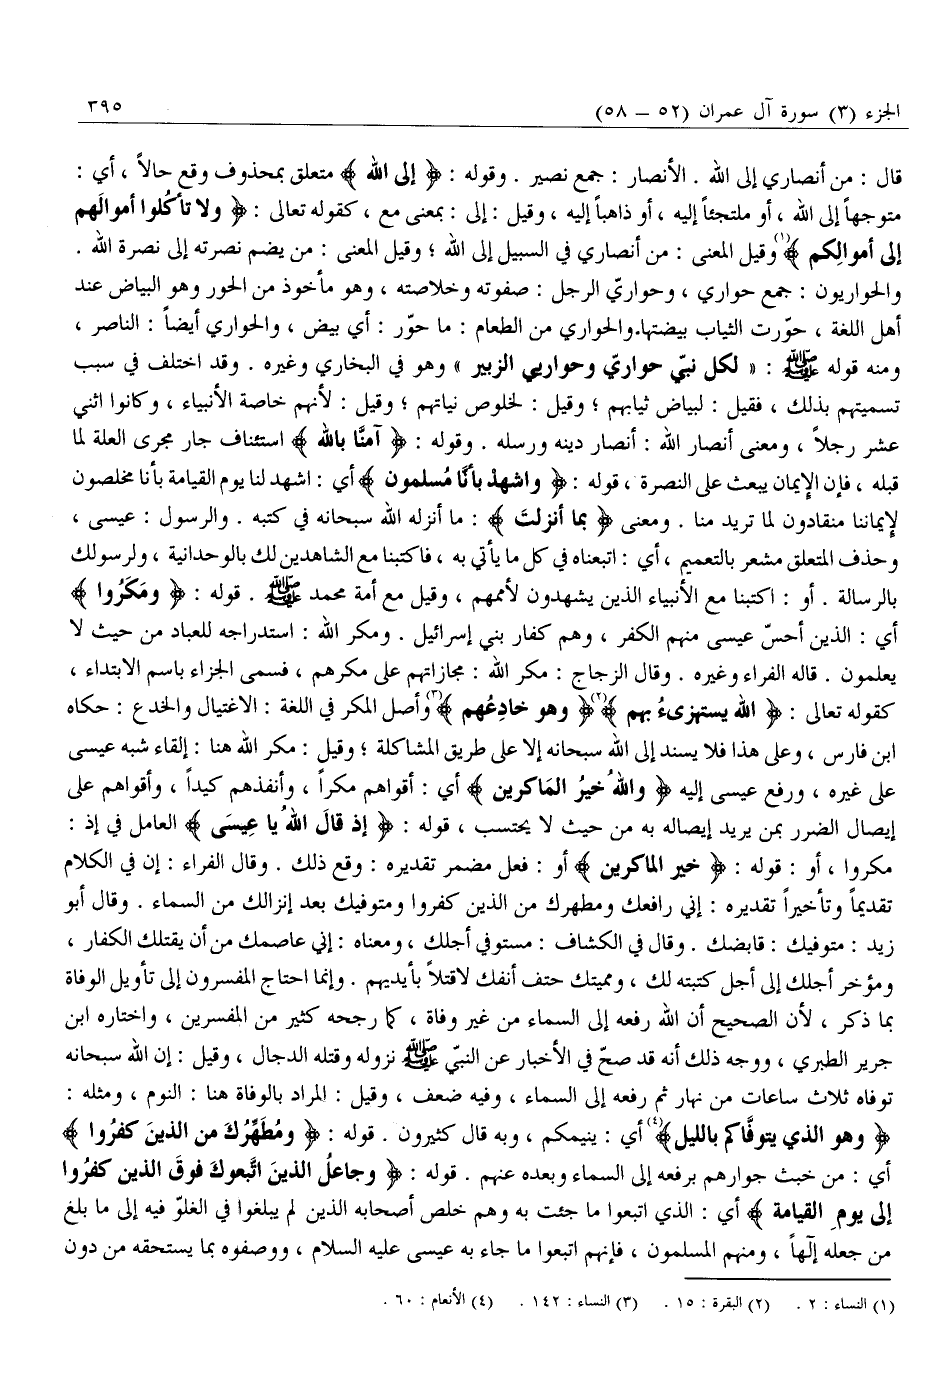 الجزء (٣) سورة آل عمران (٥٢ – ٥٨) ٣٩٥
قال : من أنصاري إلى الله . الأنصار : جمع نصير . وقوله : ﴿ إلى الله ﴾ متعلق بمحذوف وقع حالاً ، أي :
متوجهاً إلى الله ، أو ملتجئاً إليه ، أو ذاهباً إليه ، وقيل : إلى : بمعنى مع ، كقوله تعالى : ﴿ ولا تأكُلوا أموالَهم
إلى أموالِكم ﴾(١) وقيل المعنى : من أنصاري في السبيل إلى الله ؛ وقيل المعنى : من يضم نصرته إلى نصرة الله .
والحواريون : جمع حواري ، وحواريّ الرجل : صفوته وخلاصته ، وهو مأخوذ من الحور وهو البياض عند
أهل اللغة ، حوّرت الثياب بيضتها.والحواري من الطعام : ما حوّر : أي بيض ، والحواري أيضاً : الناصر ،
ومنه قوله ﷺ : « لكل نبيّ حواريّ وحواريي الزبير » وهو في البخاري وغيره . وقد اختلف في سبب
تسميتهم بذلك ، فقيل : لبياض ثيابهم ؛ وقيل : لخلوص نياتهم ؛ وقيل : لأنهم خاصة الأنبياء ، وكانوا اثني
عشر رجلاً ، ومعنى أنصار الله : أنصار دينه ورسله . وقوله : ﴿ آمنَّا بالله ﴾ استئناف جار مجرى العلة لما
قبله ، فإن الإيمان يبعث على النصرة ، قوله : ﴿ واشهدْ بأنَّا مُسلمون ﴾ أي : اشهد لنا يوم القيامة بأنا مخلصون
لإيماننا منقادون لما تريد منا . ومعنى ﴿ بما أنزلتَ ﴾ : ما أنزله الله سبحانه في كتبه . والرسول : عيسى ،
وحذف المتعلق مشعر بالتعميم ، أي : اتبعناه في كل ما يأتي به ، فاكتبنا مع الشاهدين لك بالوحدانية ، ولرسولك
بالرسالة . أو : اكتبنا مع الأنبياء الذين يشهدون لأممهم ، وقيل مع أمة محمد ﷺ . قوله : ﴿ ومَكَرُوا ﴾
أي : الذين أحسّ عيسى منهم الكفر ، وهم كفار بني إسرائيل . ومكر الله : استدراجه للعباد من حيث لا
يعلمون . قاله الفراء وغيره . وقال الزجاج : مكر الله : مجازاتهم على مكرهم ، فسمى الجزاء باسم الابتداء ،
كقوله تعالى : ﴿ الله يستهزىءُ بهم ﴾(٢) ﴿ وهو خادِعُهم ﴾(٣) وأصل المكر في اللغة : الاغتيال والخدع : حكاه
ابن فارس ، وعلى هذا فلا يسند إلى الله سبحانه إلا على طريق المشاكلة ؛ وقيل : مكر الله هنا : إلقاء شبه عيسى
على غيره ، ورفع عيسى إليه ﴿ واللهُ خيرُ المَاكرين ﴾ أي : أقواهم مكراً ، وأنفذهم كيداً ، وأقواهم على
إيصال الضرر بمن يريد إيصاله به من حيث لا يحتسب ، قوله : ﴿ إذ قالَ اللهُ يا عِيسَى ﴾ العامل في إذ :
مكروا ، أو : قوله : ﴿ خير الماكرين ﴾ أو : فعل مضمر تقديره : وقع ذلك . وقال الفراء : إن في الكلام
تقديماً وتأخيراً تقديره : إني رافعك ومطهرك من الذين كفروا ومتوفيك بعد إنزالك من السماء . وقال أبو
زيد : متوفيك : قابضك . وقال في الكشاف : مستوفي أجلك ، ومعناه : إني عاصمك من أن يقتلك الكفار ،
ومؤخر أجلك إلى أجل كتبته لك ، ومميتك حتف أنفك لاقتلاً بأيديهم . وإنما احتاج المفسرون إلى تأويل الوفاة
بما ذكر ، لأن الصحيح أن الله رفعه إلى السماء من غير وفاة ، كما رجحه كثير من المفسرين ، واختاره ابن
جرير الطبري ، ووجه ذلك أنه قد صحّ في الأخبار عن النبيّ ﷺ نزوله وقتله الدجال ، وقيل : إن الله سبحانه
توفاه ثلاث ساعات من نهار ثم رفعه إلى السماء ، وفيه ضعف ، وقيل : المراد بالوفاة هنا : النوم ، ومثله :
﴿ وهو الذي يتوفَّاكم بالليل﴾(٤) أي : ينيمكم ، وبه قال كثيرون . قوله : ﴿ ومُطَهِّرُكَ من الذينَ كفرُوا ﴾
أي : من خبث جوارهم برفعه إلى السماء وبعده عنهم . قوله : ﴿ وجاعلُ الذينَ اتَّبعوكَ فوقَ الذين كفرُوا
إلى يومِ القيامة ﴾ أي : الذي اتبعوا ما جئت به وهم خلص أصحابه الذين لم يبلغوا في الغلوّ فيه إلى ما بلغ
من جعله إلٰهاً ، ومنهم المسلمون ، فإنهم اتبعوا ما جاء به عيسى عليه السلام ، ووصفوه بما يستحقه من دون
(١) النساء : ٢ . (٢) البقرة : ١٥ . (٣) النساء : ١٤٢ . (٤) الأنعام : ٦٠ .